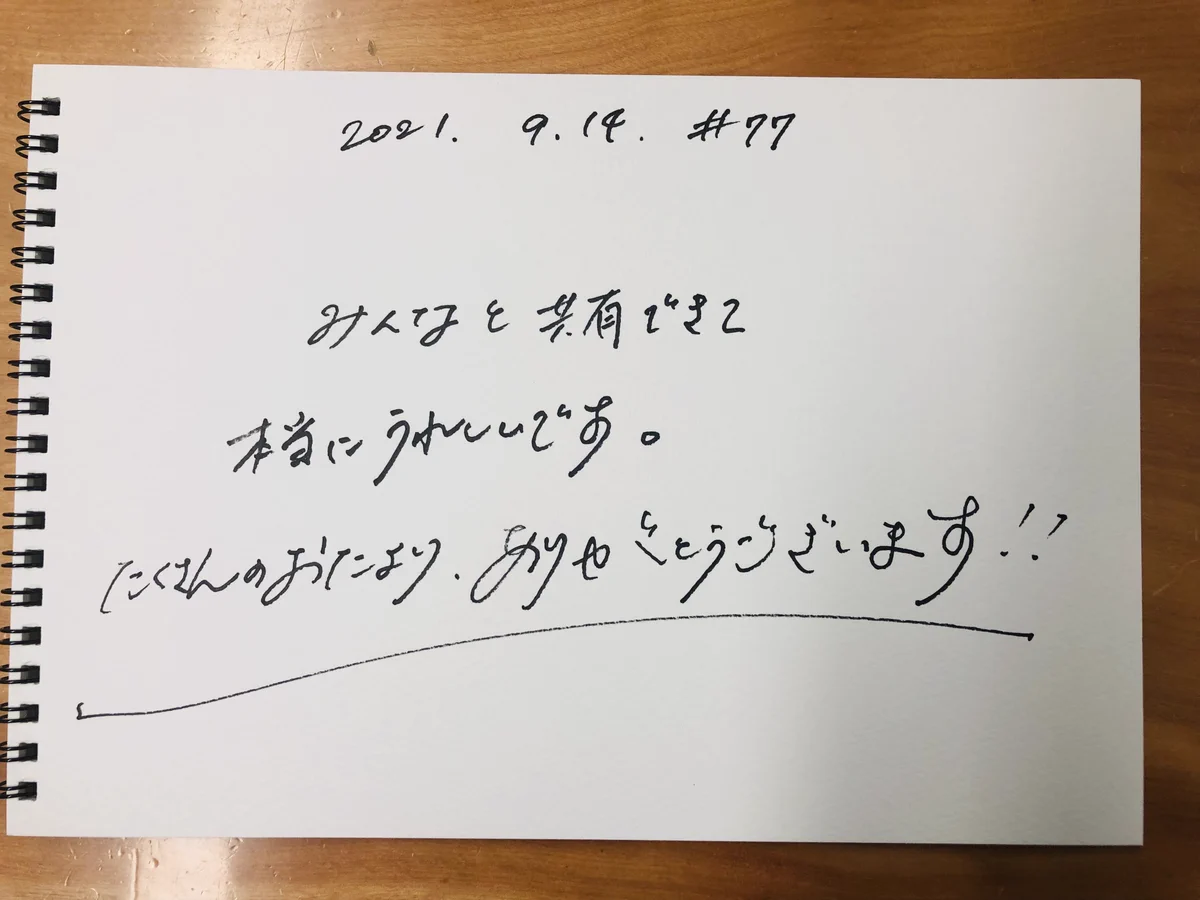 2021. 9.14. #77
みんなと共有できて
本当にうれしいです。
たくさんのおたより、ありがとうございます!!